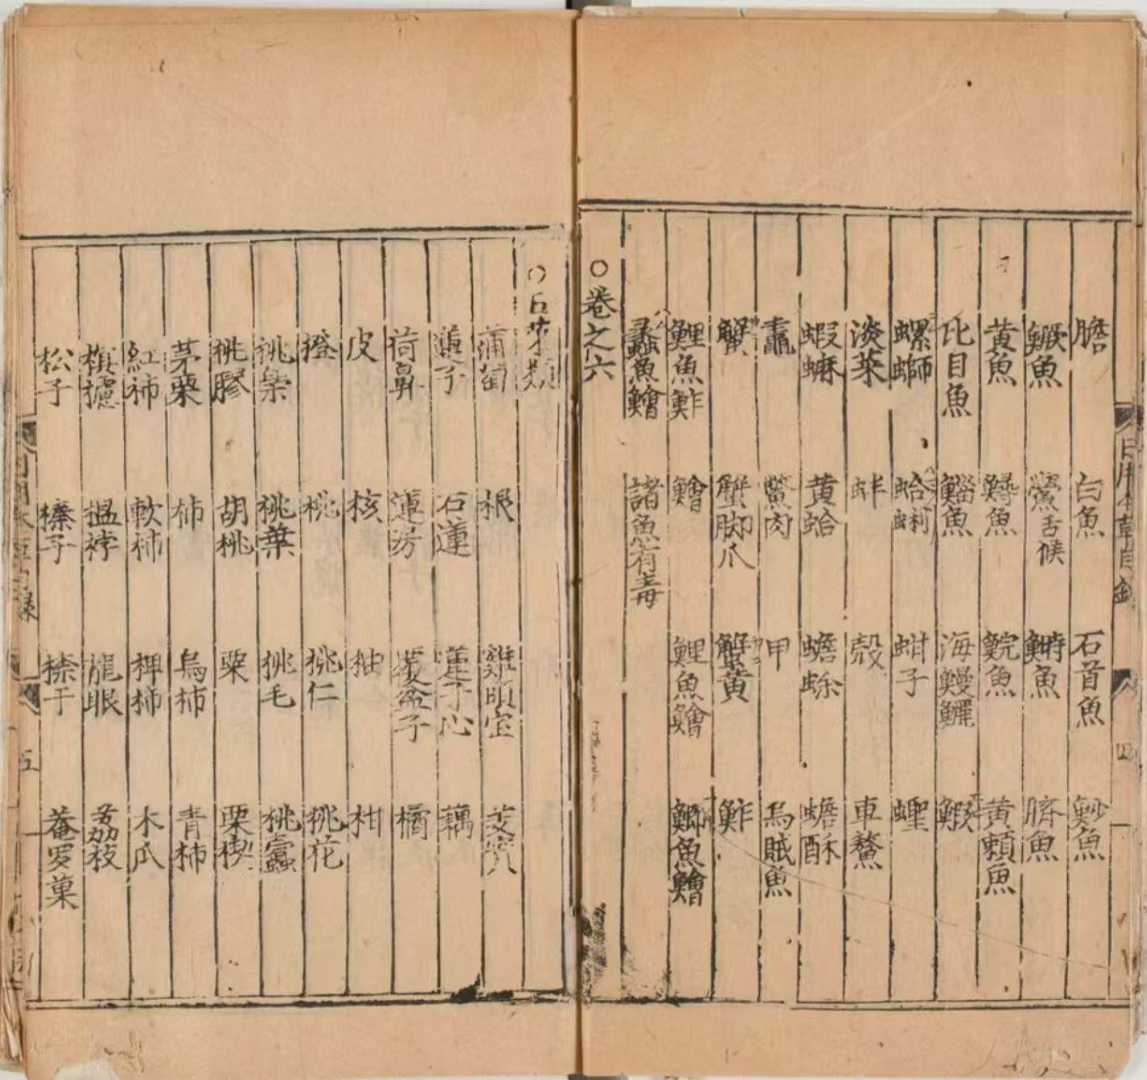 膽 白魚 石首魚 魦魚
鱖魚 鶯舌候 鰣魚 臍魚
黄魚 鱘魚 鯇魚 黄顙魚
比目魚 鯔魚 海鰻鱺 鰕
螺螄 蛤蜊 蚶子 蟶
淡菜 蚌 殼 車螯
蝦蟆 黄蛤 蟾蜍 蟾酥
鼈肉 甲 烏賊魚
蟹 蟹脚爪 蟹黄 鮓
鯉魚鮓 鱠 鯉魚鱠 鯽魚鱠
蠡魚鱠 諸魚有毒
○卷之六
○五菓類
蒲萄 根 雞頭實 芰實
蓮子 石蓮 蓮子心 藕
荷鼻 蓮房 覆盆子 橘
皮 核 柚 柑
橙 桃 桃仁 桃花
桃梟 桃葉 桃毛 桃蠧
桃膠 胡桃 栗 栗楔
茅栗 柿 烏柿 青柿
紅柿 軟柿 椑柿 木瓜
榠樝 榅桲 龍眼 荔枝
松子 榛子 菴罗菓
日用本草目錄
四
五